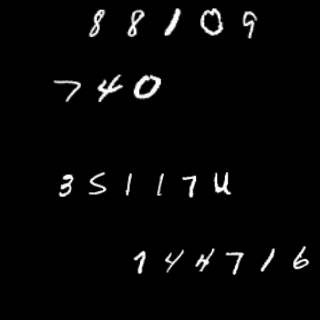 88109
740
351174
144716